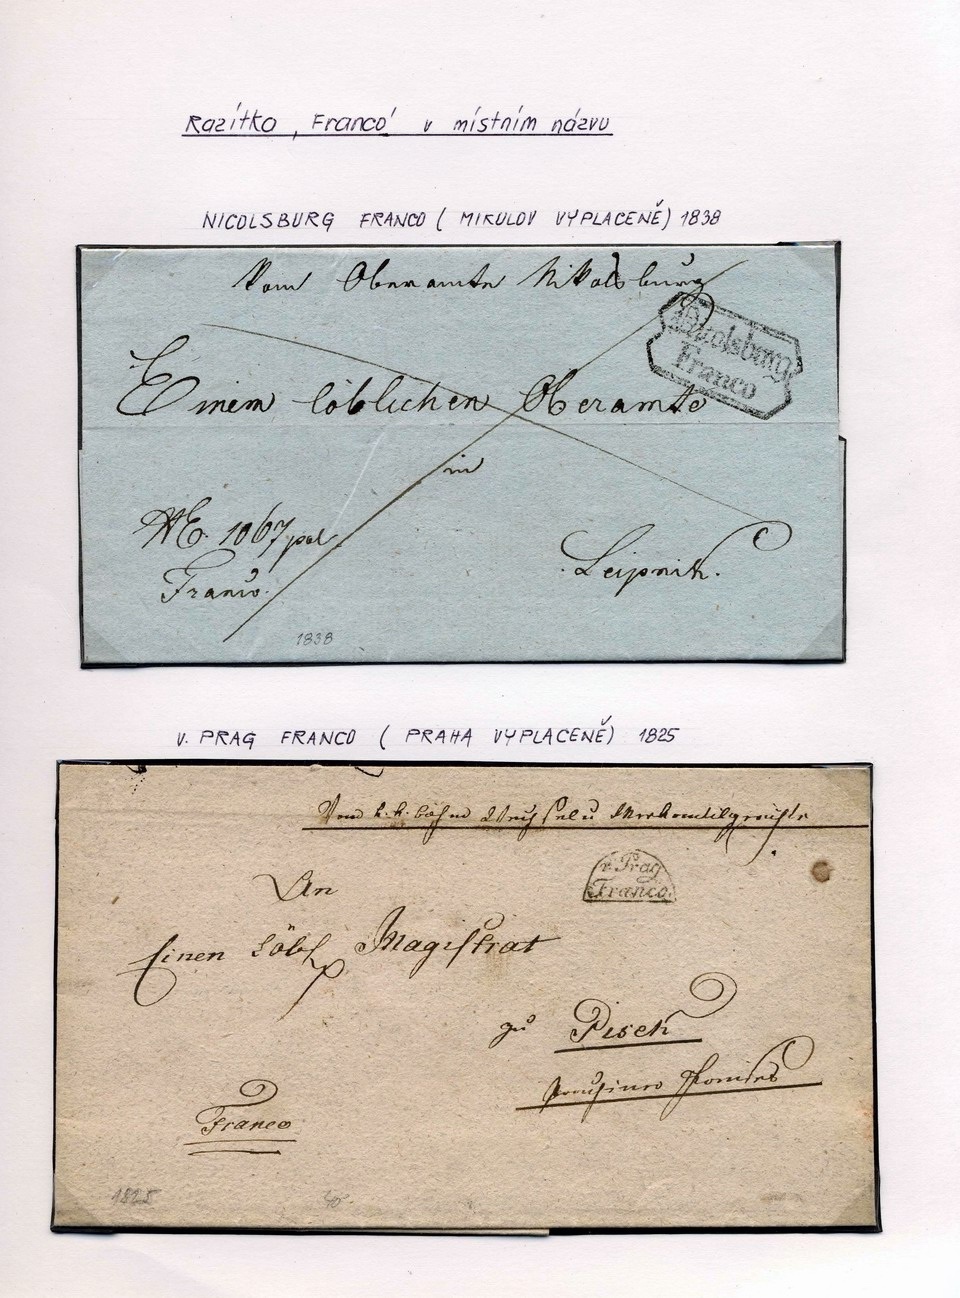 Razítko ‚Franco‘ v místním názvu
NICOLSBURG FRANCO ( MIKULOV VYPLACENĚ) 1838
Vom Oberamte Nikolsburg
Nicolsburg
Franco
Einem löblichen Oberamte
in
1067
Leipnik.
Franco.
1838
V. PRAG FRANCO ( PRAHA VYPLACENĚ) 1825
Vom k.k. böhm
v. Prag
Franco.
An
Einen Löbl Magistrat
zu Pisek
Franco
1825